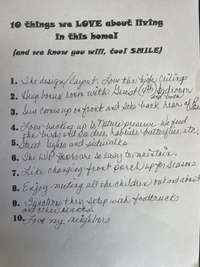 10 things we LOVE about living
in this home!
(and we know you will, too! SMILE)
1. The design/layout. Love the high ceilings
2. Huge bonus room with Guest (4th) bedroom
and bath
3. Sun comes up on front and sets back rear of
4. Love backing up to Nature preserve we feed
the birds, butterflies, etc.
5. Street lights and sidewalks
6. The are so easy to maintain
7. Like changing front porch up for seasons
8. Enjoy meeting all the children out and about
9. they setup with foodtrucks
and other
10. Love my neighbors